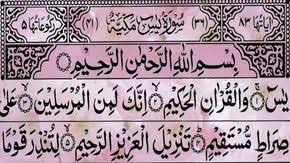 اٰیاتھا ٨٣ (٣٦) سُوْرَۃُ یٰسٓ مَکِّیَّۃٌ (٤١) رکوعاتھا ٥
بِسْمِ اللّٰہِ الرَّحْمٰنِ الرَّحِیْمِ
یٰسٓ ۝١ وَالْقُرْاٰنِ الْحَکِیْمِ ۝٢ اِنَّکَ لَمِنَ الْمُرْسَلِیْنَ ۝٣ عَلٰی
صِرَاطٍ مُّسْتَقِیْمٍ ۝٤ تَنْزِیْلَ الْعَزِیْزِ الرَّحِیْمِ ۝٥ لِتُنْذِرَ قَوْمًا